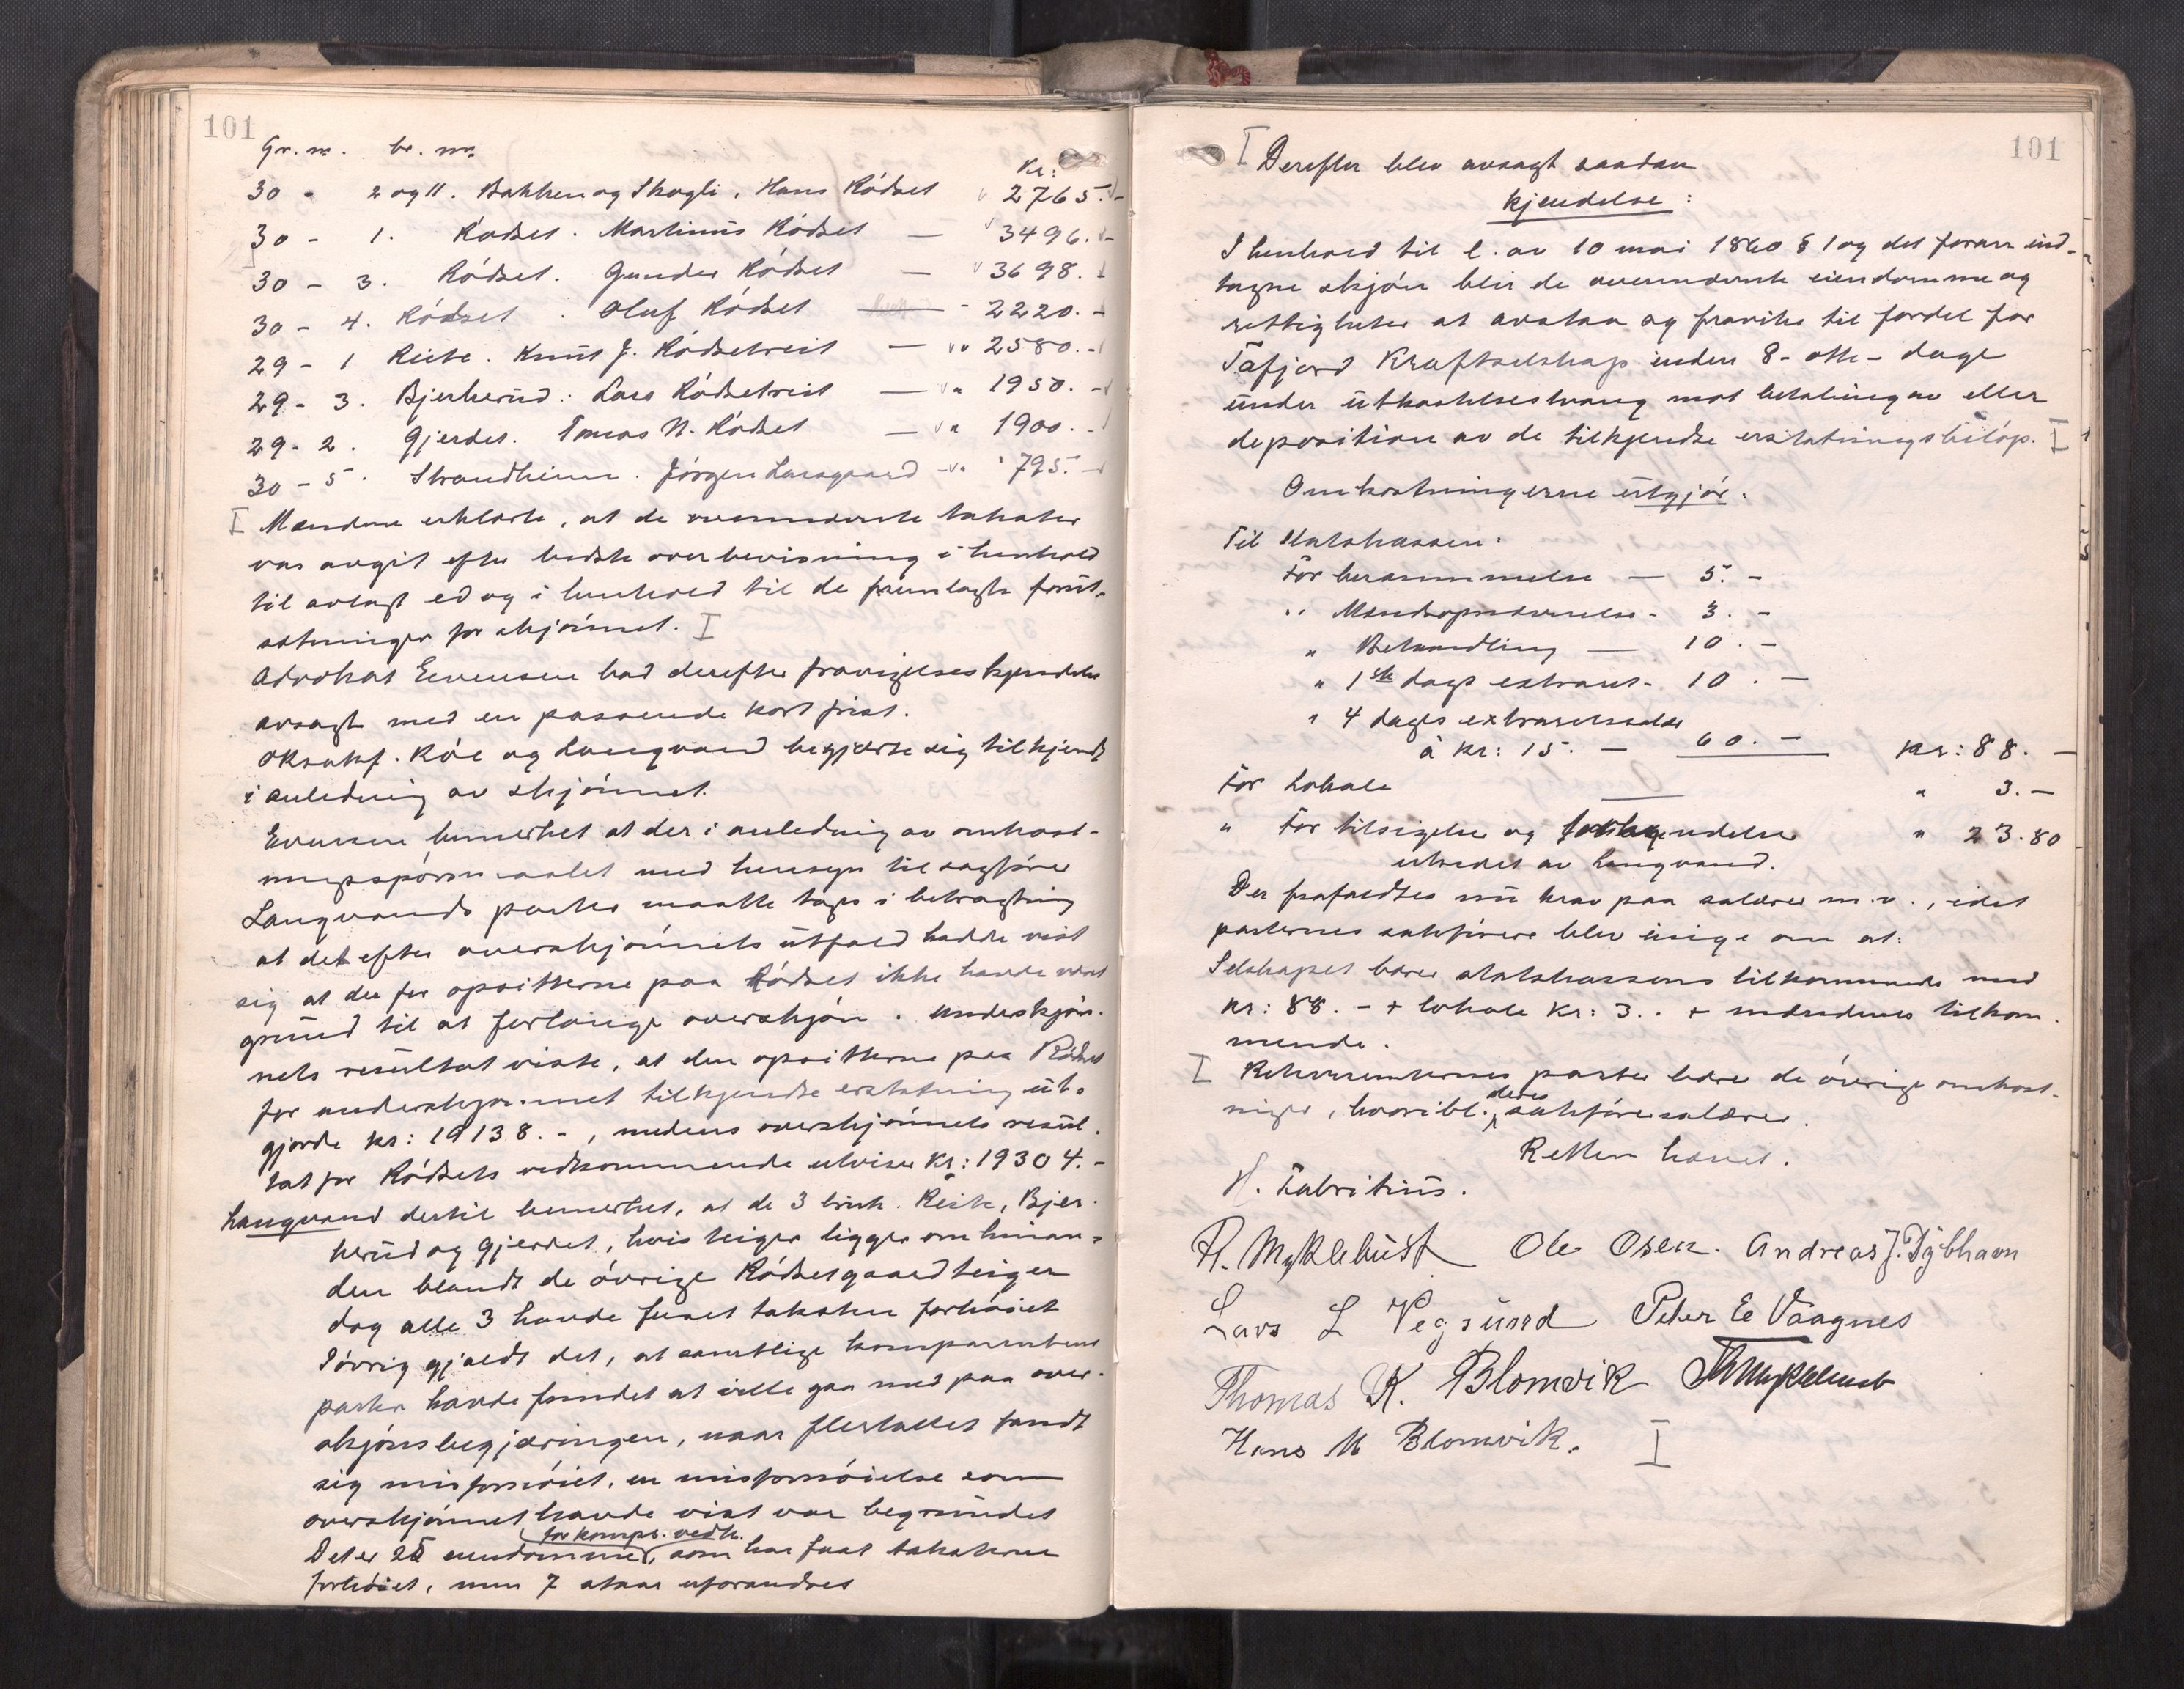 101
Gr. nr. br. nr.
Kr:
30 - 2 og 11. Bakken og Skogli, Hans Rödset 2765.-
30 - 1. Rödset. Martinus Rödset — 3496.-
30 - 3. Rödset. Gunder Rödset — 3698.-
30 - 4. Rödset. Oluf Rödset - 2220.-
29 - 1 Reite. Knut J. Rödsetreit — " 2580.-
29 - 3. Bjerkerud: Lars Rödsetreit — " 1950.-
29 - 2. Gjerdet. Tomas N. Rödset — " 1900.-
30 - 5. Strandheim. Jörgen Langaard - " 795.-
Mændene erklærte, at de ovennævnte takster
var avgit efter bedste overbevisning i henhold
til avlagt ed og i henhold til de fremlagte forut-
sætninger for skjönnet.
Advokat Evensen bad derefter fravigelseskjendelse
avsagt med en passende kort frist.
Oksakf. Röe og Langvand begjærte sig tilkjendt
i anledning av skjönnet.
Evensen bemerket at der i anledning av omkost-
ningsspörsmaalet med hensyn til sagförer
Langvands parter maatte tages i betragtning
at det efter overskjönnets utfald hadde vist
sig at der for opsitterne paa Rödset ikke havde været
grund til at forlange overskjön. Underskjön-
nets resultat viste, at den opsitterne paa Rödset
for underskjönnet tilkjendte erstatning ut-
gjorde kr: 19138.-, medens overskjönnets resul-
tat for Rödsets vedkommende utviser kr: 19304.-
Langvand dertil bemerket, at de 3 bruk. Reite, Bjer-
kerud og Gjerdet, hvis teiger ligger om hinan-
den blandt de övrige Rödsetgaardteiger
dog alle 3 havde faaet taksten forhöiet
Iövrig gjaldt det, at samtlige komparentens
parter havde fundet at ville gaa med paa over-
skjönsbegjæringen, naar flertallet fandt
sig misfornöiet, en misfornöielse som
overskjönnet havde vist var begrundet
for kompr. vedk.
Det er 25 eiendommer, som har faat taksterne
forhöiet, men 7 staar uforandret
101
Derefter blev avsagt saadan
kjendelse:
I henhold til l. av 10 mai 1860 § 1 og det foran ind-
tagne skjön blir de ovennævnte eiendomme og
rettigheter at avstaa og fravike til fordel for
Tafjord Kraftselskap inden 8 - otte - dage
under utkastelsestvang mot betaling av eller
deposition av de tilkjendte erstatningsbelöp.
Omkostningerne utgjör:
Til statskassen:
For berammelse — 5.-
" Mændsopnævnelse - 3.-
" Behandling — 10.-
" 1ste dags extraret - 10.-
" 4 dages extraretssæde
à kr: 15. — 60.- kr: 88.-
For Lokale " 3.-
" For tilsigelse og " 23.80
utredet av Langvand.
Der frafaldtes nu krav paa salærer m.v., idet
parternes sakförere blev enige om at:
Selskapet bærer statskassens tilkommende med
kr: 88.- + lokale kr: 3.. + mændenes tilkom-
mende.
Rekvirenternes parter bærer de övrige omkost-
deres
ninger, hvori ibl. sakförersalærer.
Retten hævet.
H. Fabritius.
H. Myklebust Ole Osen. Andreas J. Dybhavn
Lars L Vegsund Peter E Vaagnes
Thomas K. Blomvik Myklebust
Hans M Blomvik.